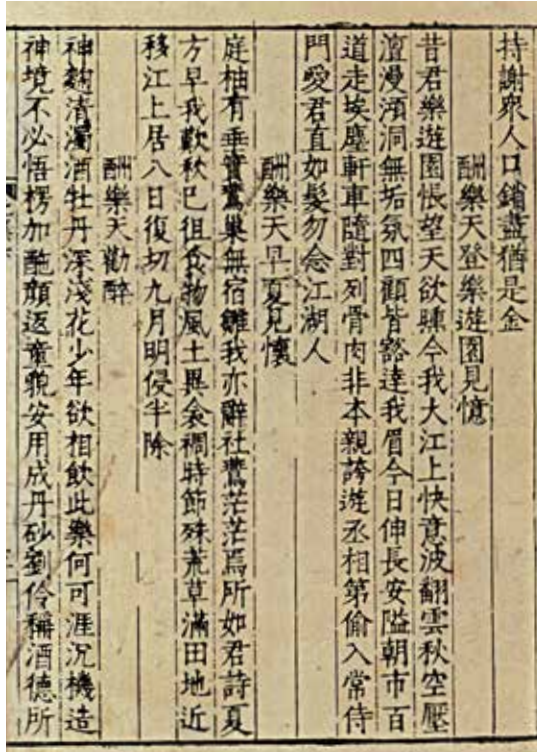 持謝衆人口鎖盡猶是金
酬樂天登樂遊園見憶
昔君樂遊園悵望天欲曛今我大江上快意波翻雲秋空壓
澶漫澒洞無垢氛四顧皆豁達我眉今日伸長安隘朝市百
道走埃塵軒車隨對列骨肉非本親誇遊丞相第偷入常侍
門愛君直如髮勿念江湖人
酬樂天早夏見懷
庭柚有垂實鷰巢無宿雛我亦辭社鷰茫茫焉所如君詩夏
方早我歎秋已徂食物風土異衾裯時節殊荒草滿田地近
移江上居八日復切九月明侵半除
酬樂天勸醉
神麴清濁酒牡丹深淺花少年欲相飲此樂何可涯沉機造
神境不必悟楞加酡顔返童貌安用成丹砂劉伶稱酒德所